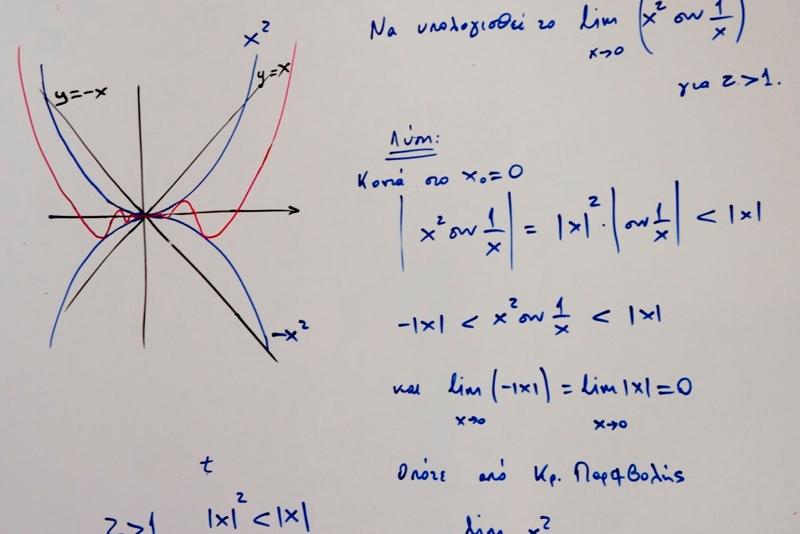 Να υπολογισθεί το lim x→0 (x² συν 1/x)
για z>1.
Λύση:
Κοντά στο x₀=0
|x² συν 1/x| = |x|²·|συν 1/x| < |x|
-|x| < x² συν 1/x < |x|
και lim x→0 (-|x|) = lim x→0 |x| = 0
Οπότε από Κρ. Παρεμβολής
lim x²
x²
y=-x
y=x
-x²
t
z>1 |x|² < |x|